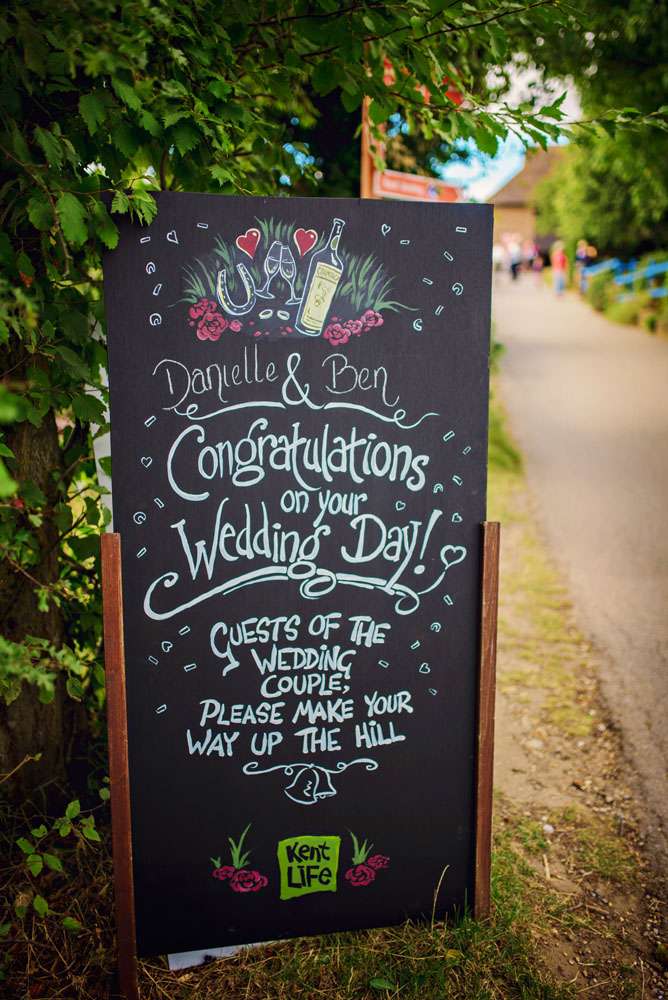 Danielle & Ben
Congratulations
on your
Wedding Day!
GUESTS OF THE
WEDDING
COUPLE,
PLEASE MAKE YOUR
WAY UP THE HILL
Kent
LiFe